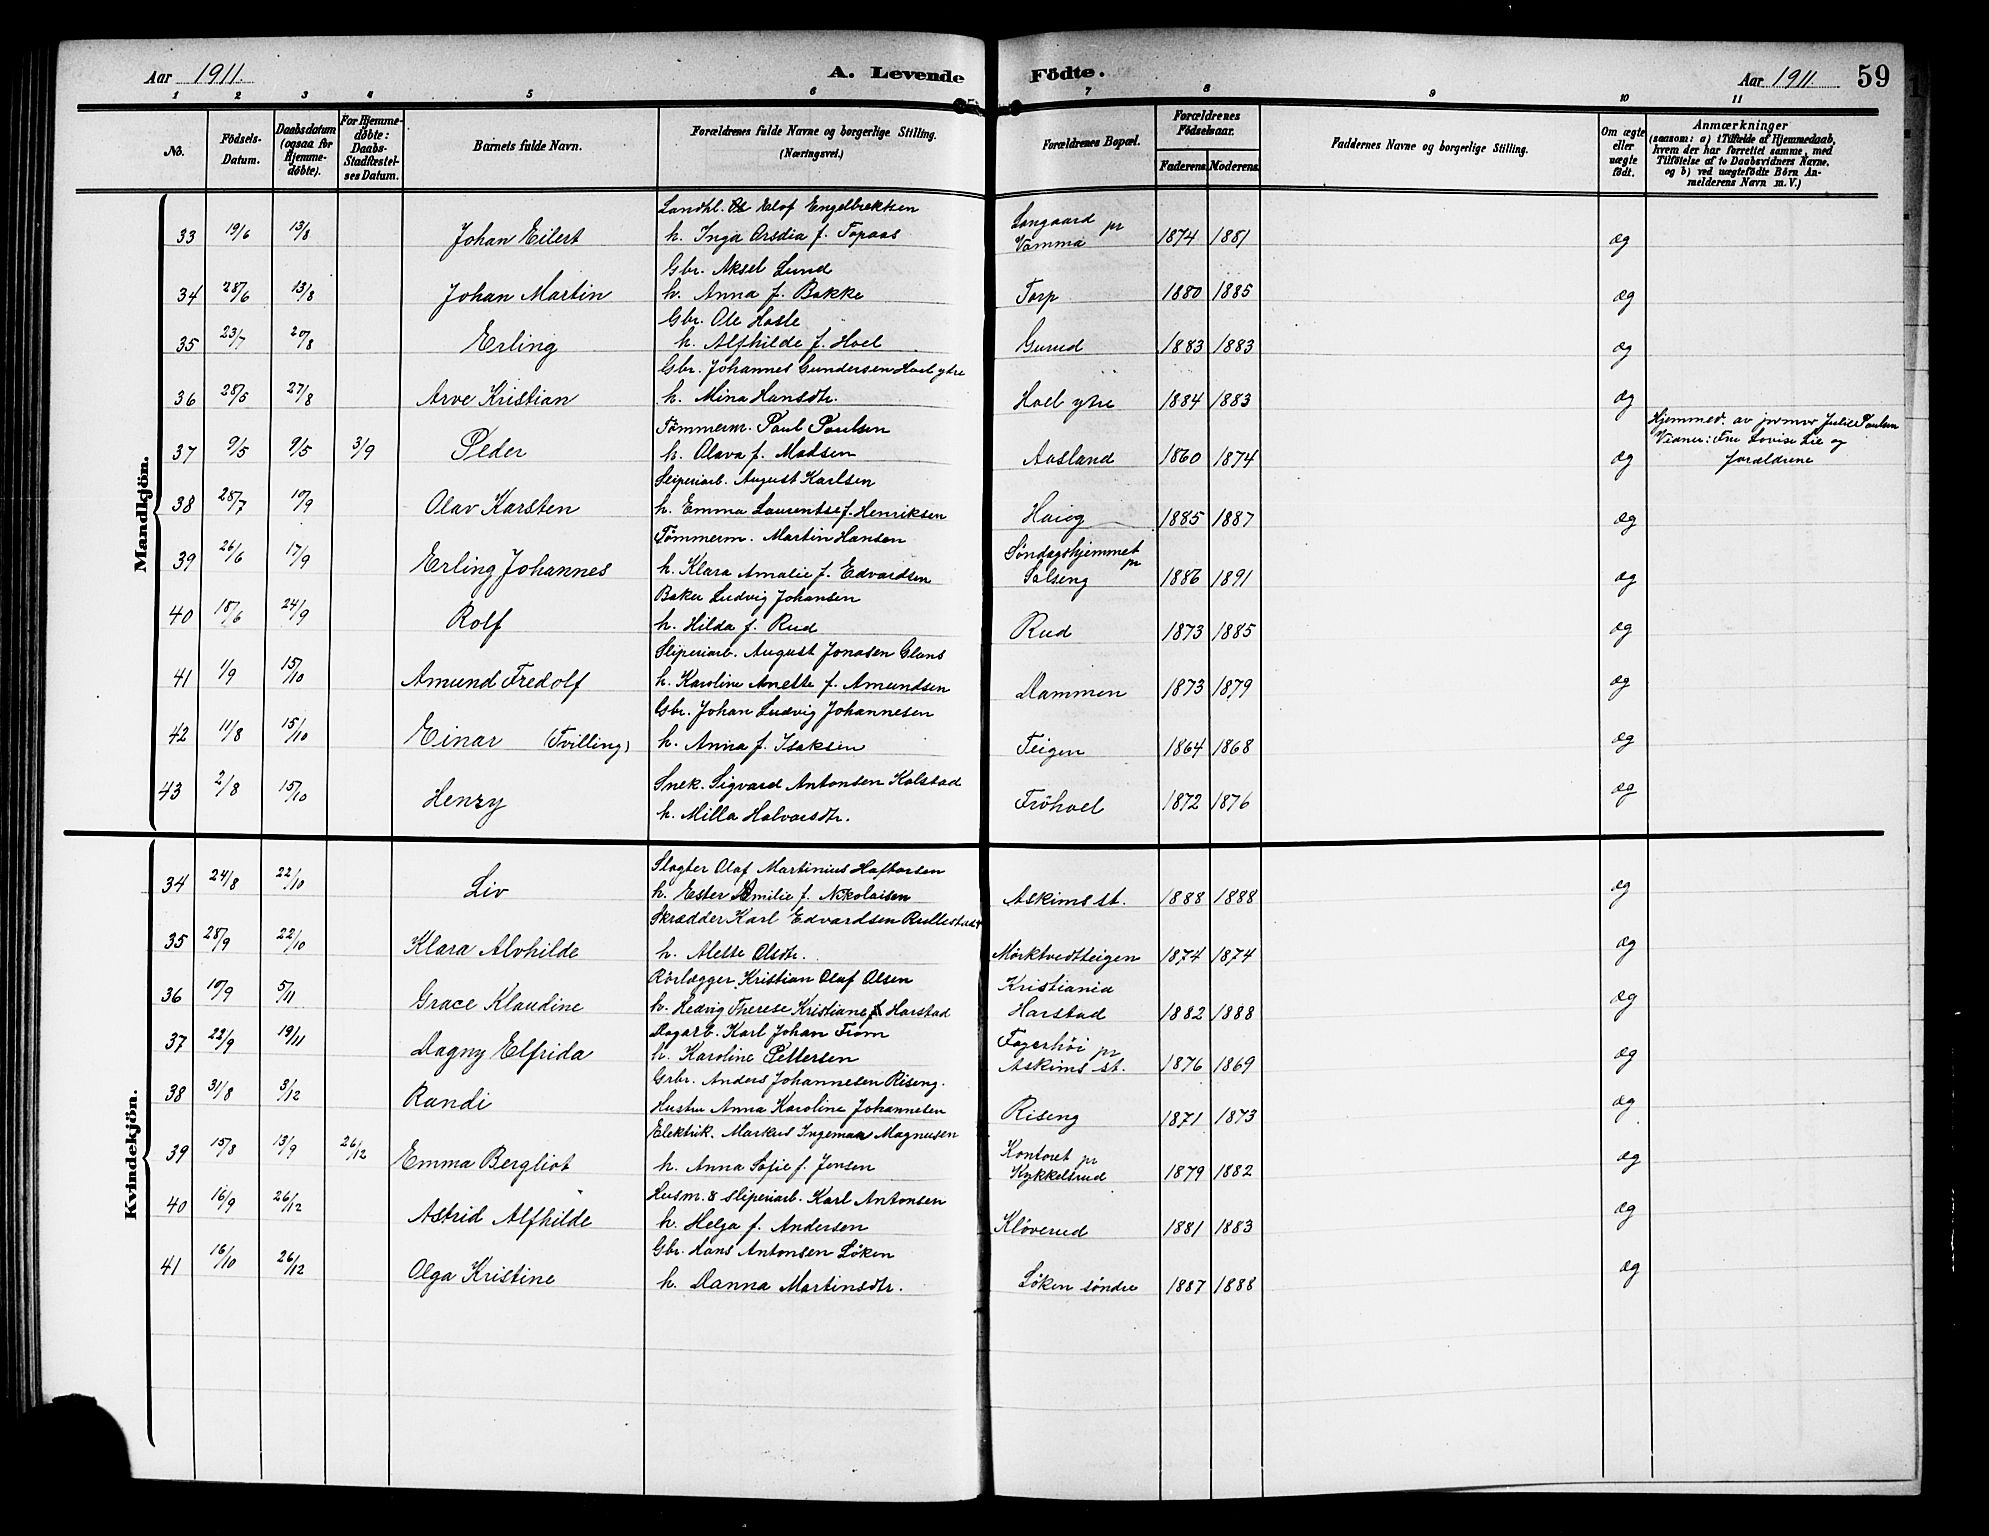 Aar 1911. A. Levende Födte. Aar 1911. 59
1 2 3 4 5 6 7 8 9 10 11
No. Födsels-Datum. Daabsdatum (ogsaa for Hjemmedøbte). For Hjemmedøbte: Daabs-Stadfæstelses Datum. Barnets fulde Navn. Forældrenes fulde Navne og borgerlige Stilling. (Næringsvei.) Forældrenes Bopæl. Forældrenes Födselsaar. Faderens Moderens. Faddernes Navne og borgerlige Stilling. Om ægte eller uægte födt. Anmærkninger (saasom: a) i Tilfælde af Hjemmedaab, hvem der har forrettet samme, med Tilföielse af to Daabsvidners Navne, og b) ved uægtefödte Börn Anmelderens Navn m. V.)
Mandkjön.
Landhl. Elof Engelbrektsen
33 19/6 13/8 Johan Eilert h. Inga Arsdia f. Topaas Langaard pr Vamma 1874 1881 æg
Gbr. Aksel Lund
34 28/6 13/8 Johan Martin h. Anna f. Bakke Torp 1880 1885 æg
Gbr. Ole Hasle
35 23/7 20/8 Erling h. Alfhilde f. Hoel Gurud 1883 1883 æg
Gbr. Johannes Gundersen Hoel ytre
36 28/5 27/8 Arve Kristian h. Mina Hansdtr. Hoel ytre 1884 1883 æg
Tømmerm. Paul Paulsen
37 9/5 9/5 3/9 Peder h. Olava f. Madsen Aasland 1860 1874 æg Hjemmed. av jormor Julie Paulsen
Vidner: Fru Lovise Lie og
foreldrene
Sliperiarb. August Karlsen
38 28/7 10/9 Olav Karsten h. Emma Laurentse f. Henriksen Haieg 1885 1887 æg
Tømmerm. Martin Hansen
39 26/6 17/9 Erling Johannes h. Klara Amalie f. Edvardsen Søndagshjemmet pr Solseng 1886 1891 æg
Baker Ludvig Johansen
40 18/6 24/9 Rolf h. Hilda f. Rud Rud 1873 1885 æg
Sliperiarb. August Jonasen Glans
41 1/9 15/10 Amund Fredolf h. Karoline Anette f. Amundsen Dammen 1873 1879 æg
Gbr. Johan Ludvig Johannesen
42 11/8 15/10 Einar (Tvilling) h. Anna f. Isaksen Teigen 1864 1868 æg
Snek. Sigvard Antonsen Kolstad
43 2/8 15/10 Henry h. Milla Halvorsdtr. Fröhoel 1872 1876 æg
Kvindekjön.
Slagter Olaf Martinius Haftorsen
34 24/8 22/10 Liv h. Ester Emilie f. Nikolaisen Askims st. 1888 1888 æg
Skrædder Karl Edvardsen Rullestad
35 28/9 22/10 Klara Alvhilde h. Alette Olsdtr. Mørktvedtteigen 1874 1874 æg
Rørlægger Kristian Olaf Olsen Kristiania
36 10/9 5/11 Grace Klaudine h. Hedvig Therese Kristiane f. Harstad Harstad 1882 1888 æg
Dagarb. Karl Johan From Fagerhöi pr
37 22/9 19/11 Dagny Elfrida h. Karoline Pettersen Askims st. 1876 1869 æg
Grbr. Anders Johannesen Riseng.
38 31/8 3/12 Randi Hustru Anna Karoline Johannesen Riseng 1871 1873 æg
Elektrik. Markus Ingeman Magnusen Kontoret pr
39 15/8 13/9 26/12 Emma Bergliot h. Anna Sofie f. Jensen Kykkelsrud 1879 1882 æg
Husm. & sliperiarb. Karl Antonsen
40 16/9 26/12 Astrid Alfhilde h. Helga f. Andersen Kløverud 1881 1883 æg
Gbr. Hans Antonsen Løken
41 16/10 26/12 Olga Kristine h. Danna Martinsdtr. Løken søndre 1887 1888 æg